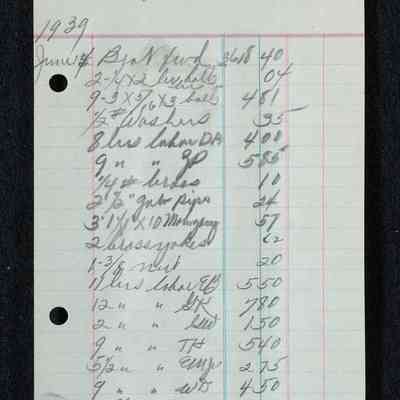 1939
June 14 Bro't fwd 3618 40
2 - 1/4 x 2 bolts 04
9 - 3 x 5/16 x 3 bolts 481
1/2 # Washers 35
8 hrs labor DA 400
9 " " JP 585
1/4 # brads 10
2 1/2" galv pipe 24
3' 1 1/8 x 10 Mahogany 57
2 brass yokes
1 - 3/8 nut 20
11 hrs labor EB 550
12 " " GK 780
2 " " 150
9 " " TH 540
5 1/2 " " 275
9 " " WD 450